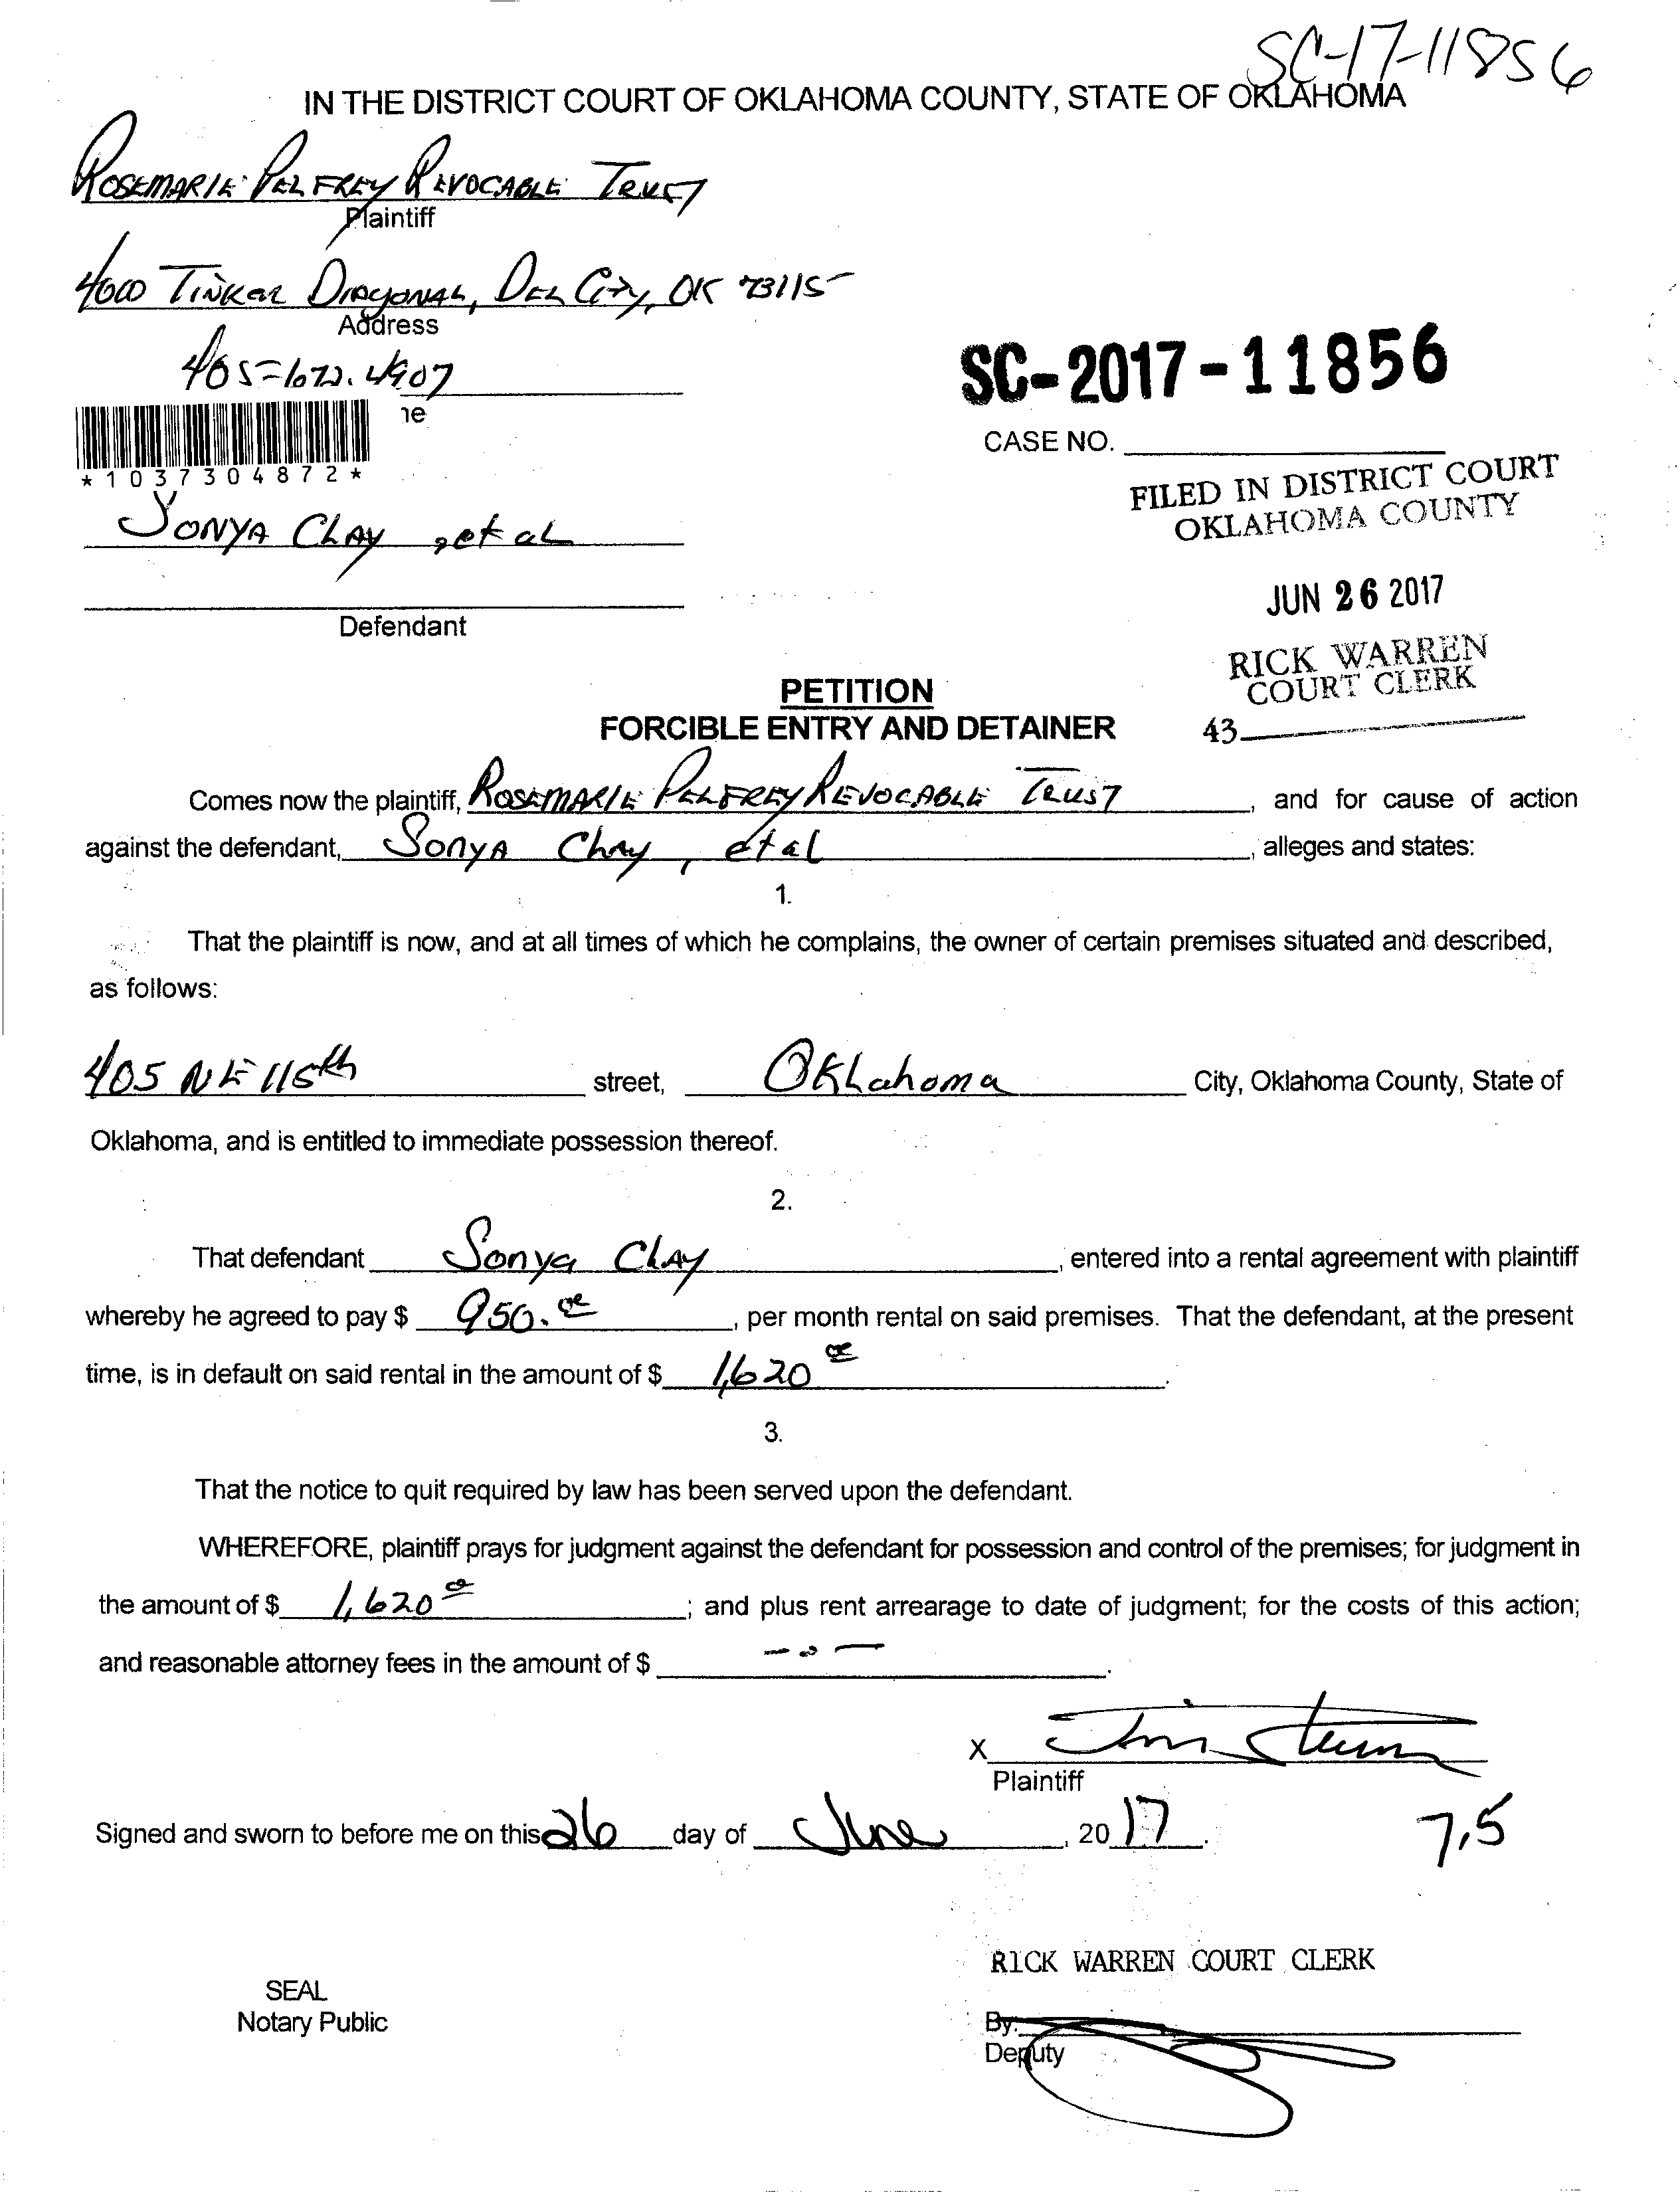 SC-17-11856
IN THE DISTRICT COURT OF OKLAHOMA COUNTY, STATE OF OKLAHOMA
ROSEMARIE PELFREY REVOCABLE TRUST
Plaintiff
4600 TINKER DIAGONAL, DEL CITY, OK 73115
Address
405-672.4907
ne
*1037304872*
SC-2017-11856
CASE NO.
FILED IN DISTRICT COURT
OKLAHOMA COUNTY
SONYA CLAY, et al
JUN 26 2017
Defendant
RICK WARREN
COURT CLERK
43
PETITION
FORCIBLE ENTRY AND DETAINER
Comes now the plaintiff, ROSEMARIE PELFREY REVOCABLE TRUST, and for cause of action
against the defendant, SONYA CLAY, et al, alleges and states:
1.
That the plaintiff is now, and at all times of which he complains, the owner of certain premises situated and described,
as follows:
405 NE 115th street, OKLahoma City, Oklahoma County, State of
Oklahoma, and is entitled to immediate possession thereof.
2.
That defendant Sonya CLAY, entered into a rental agreement with plaintiff
whereby he agreed to pay $ 950.00, per month rental on said premises. That the defendant, at the present
time, is in default on said rental in the amount of $ 1,620 00.
3.
That the notice to quit required by law has been served upon the defendant.
WHEREFORE, plaintiff prays for judgment against the defendant for possession and control of the premises; for judgment in
the amount of $ 1,620 00; and plus rent arrearage to date of judgment; for the costs of this action;
and reasonable attorney fees in the amount of $ -0-.
X
Plaintiff
Signed and sworn to before me on this 26 day of June, 2017.
7,5
RICK WARREN COURT CLERK
SEAL
Notary Public
By:
Deputy